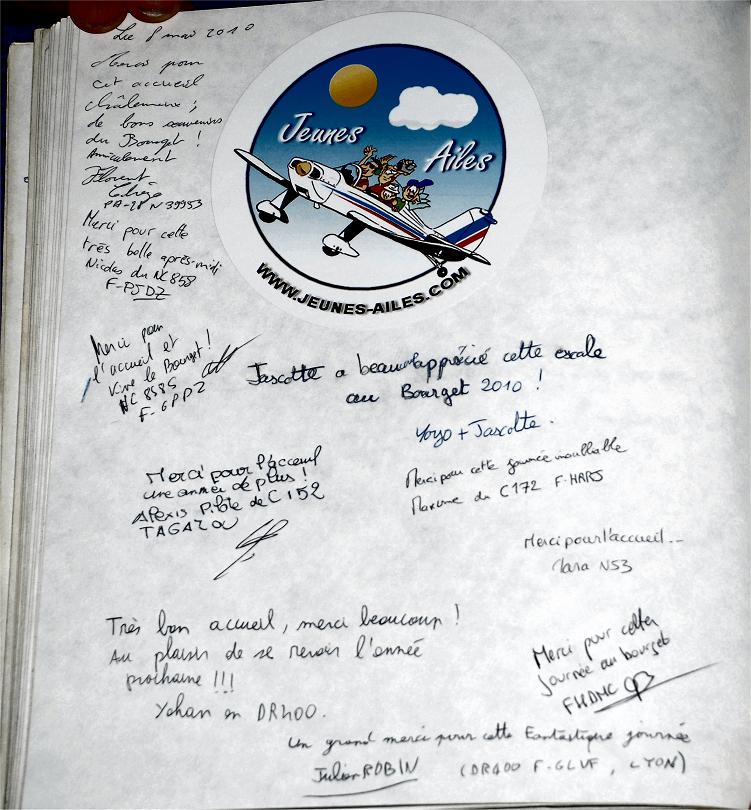 Le 8 mai 2010
Merci pour
cet accueil
chaleureux ;
de bons souvenirs
du Bourget !
Amicalement
Florent
PA-28 N39953
Merci pour cette
très belle après-midi
Nicolas du NC 858
F-PJDZ
Jeunes
Ailes
WWW.JEUNES-AILES.COM
Merci pour
l'accueil et
Vive le Bourget !
NC 858S
F-GPPZ
Jascotte a beaucoup apprécié cette escale
au Bourget 2010 !
Yoyo + Jascotte.
Merci pour l'acceuil
une année de plus !
Alexis Pilote de C152
TAGAZOU
Merci pour cette journée inoubliable
Maxime du C172 F-HARS
Merci pour l'accueil...
Clara N53
Très bon accueil, merci beaucoup !
Au plaisir de se revoir l'année
prochaine !!!
Yohan en DR400.
Merci pour cette
journée au bourget
FHDMC
Un grand merci pour cette Fantastique journée
Julien ROBIN (DR400 F-GLVF, LYON)